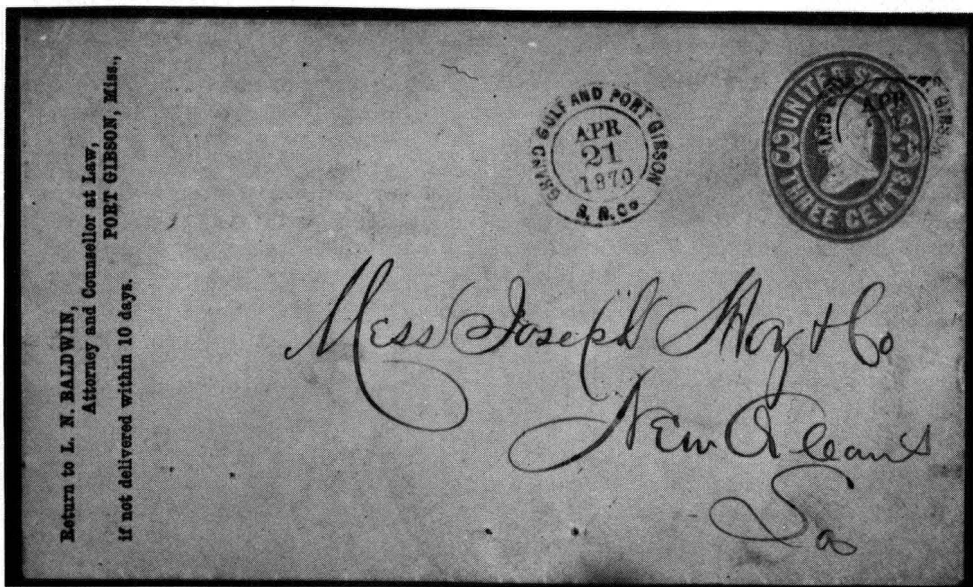 Return to L. N. BALDWIN,
Attorney and Counsellor at Law,
PORT GIBSON, Miss.,
if not delivered within 10 days.
GRAND GULF AND PORT GIBSON
APR
21
1870
R. R. Co
UNITED STATES
THREE CENTS
APR
Mess Joseph & Co
New Orleans
La